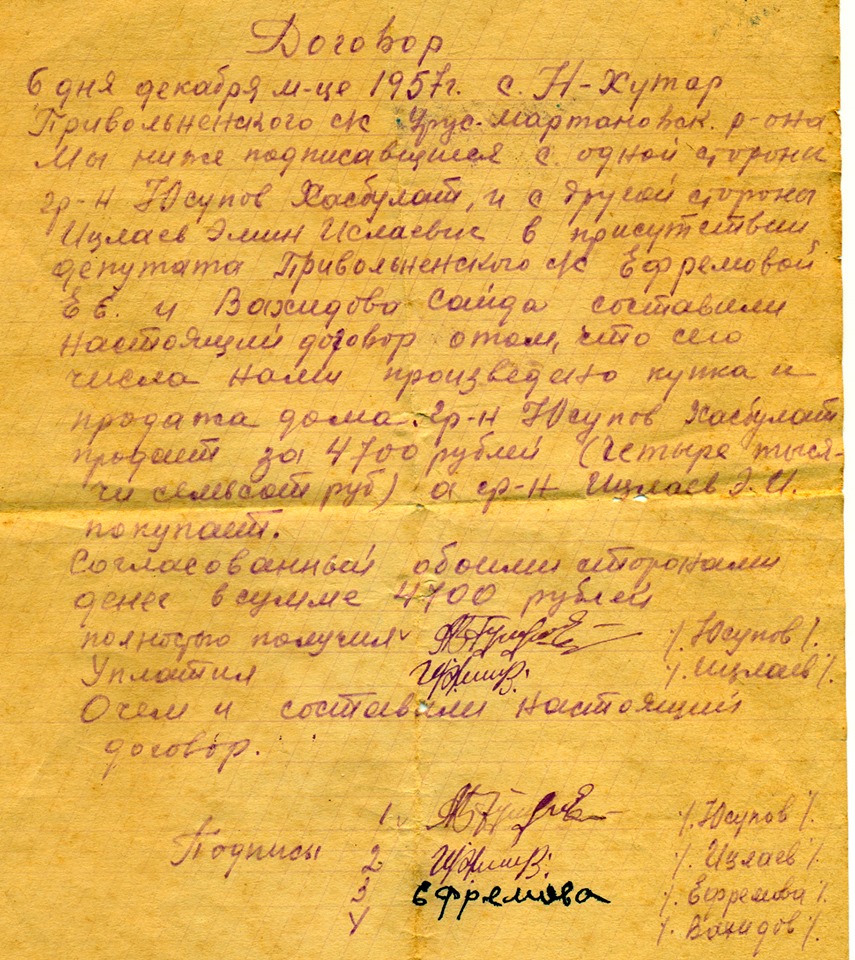 Договор
6 дня декабря м-це 1957г. с. Н-Хутар
Привольненского с/к Урус-Мартановск. р-она
Мы ниже подписавшиеся с одной стороны
гр-н Юсупов Хасбулат, и с другой стороны
Ицлаев Эмин Ислаевич в присутствии
депутата Привольненского с/к Ефремовой
Е Е. и Вахидова Сайда составили
настоящий договор о том, что сего
числа нами произведено купка и
продажа дома. гр-н Юсупов Хасбулат
продает за 4700 рублей (Четыре тыся-
чи семьсот руб) а гр-н Ицлаев Э.И.
покупает.
Согласованный обоими сторонами
денег в сумме 4700 рублей
полностью получил ٧ /. Юсупов /.
Уплатил /. Ицлаев /.
О чем и составили настоящий
договор.
1 ٧ /. Юсупов /.
Подписы 2 /. Ицлаев /.
3 Ефремова /. Ефремова /.
4 /. Вахидов /.